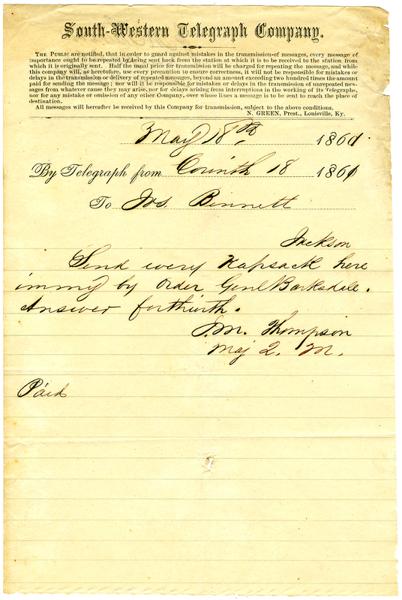 South-Western Telegraph Company,
The Public are notified, that in order to guard against mistakes in the transmission of messages, every message of
importance ought to be repeated by being sent back from the station at which it is to be received to the station from
which it is originally sent. Half the usual price for transmission will be charged for repeating the message, and while
this company will, as heretofore, use every precaution to ensure correctness, it will not be responsible for mistakes or
delays in the transmission or delivery of repeated messages, beyond an amount exceeding two hundred times the amount
paid for sending the message; nor will it be responsible for mistakes or delays in the transmission of unrepeated mes-
sages from whatever cause they may arise, nor for delays arising from interruptions in the working of its Telegraphs,
nor for any mistake or omission of any other Company, over whose lines a message is to be sent to reach the place of
destination.
All messages will hereafter be received by this Company for transmission, subject to the above conditions.
N. GREEN, Prest., Louisville, Ky.
May 18th, 1861
By Telegraph from Corinth 18 1861
To Jos Binnett
Jackson
Send every Kapsack here
immy by order Genl Barksdale.
Answer forthwith.
J.M. Thompson
Maj 2. M.
Paid